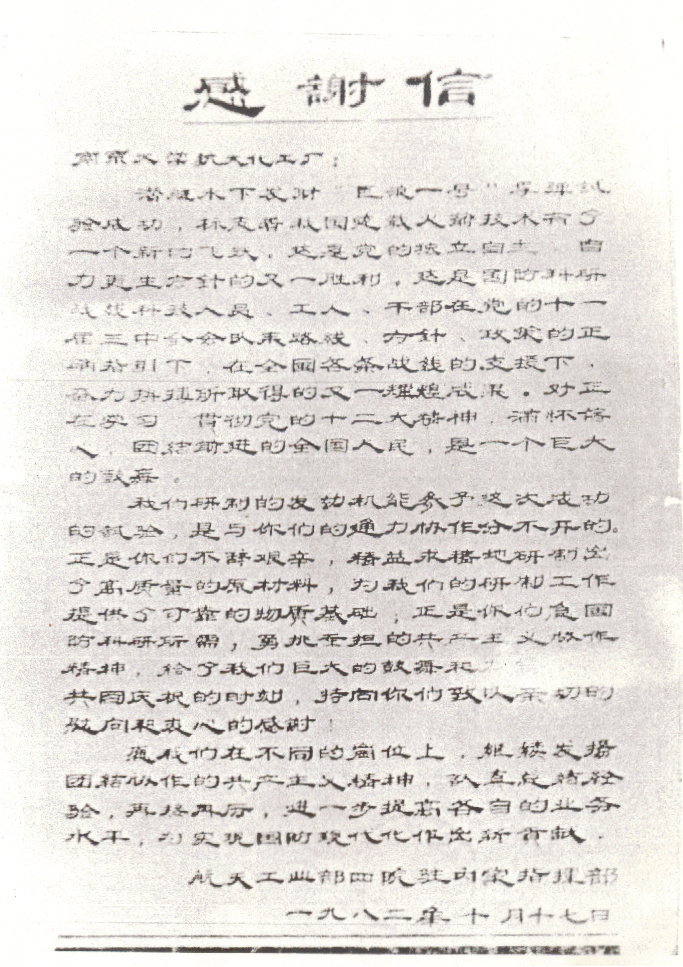 感謝信
南京大学航天化工厂：
潜艇水下发射“巨浪一号”导弹试
验成功，标志着我国运载火箭技术有了
一个新的飞跃，这是党的独立自主、自
力更生方针的又一胜利，这是国防科研
战线科技人员、工人、干部在党的十一
届三中全会以来路线、方针、政策的正
确指引下，在全國各条战线的支援下，
奋力拼搏所取得的又一辉煌成果。对正
在学习、贯彻党的十二大精神，满怀信
心，团结前进的全国人民，是一个巨大
的鼓舞。
我们研制的发动机能参予这次成功
的试验，是与你们的通力协作分不开的。
正是你们不辞艰辛，精益求精地研制出
了高质量的原材料，为我们的研制工作
提供了可靠的物质基础；正是你们急國
防科研所需，勇挑重担的共产主义协作
精神，给了我们巨大的鼓舞和力
共同庆祝的时刻，特向你们致以亲切的
慰问和衷心的感謝！
愿我们在不同的崗位上，继续发揚
团结协作的共产主义精神，认真总结经
验，再接再厉，进一步提高各自的业务
水平，为实现国防现代化作出新贡献．
航天工业部四院驻内蒙指揮部
一九八二年十月十七日